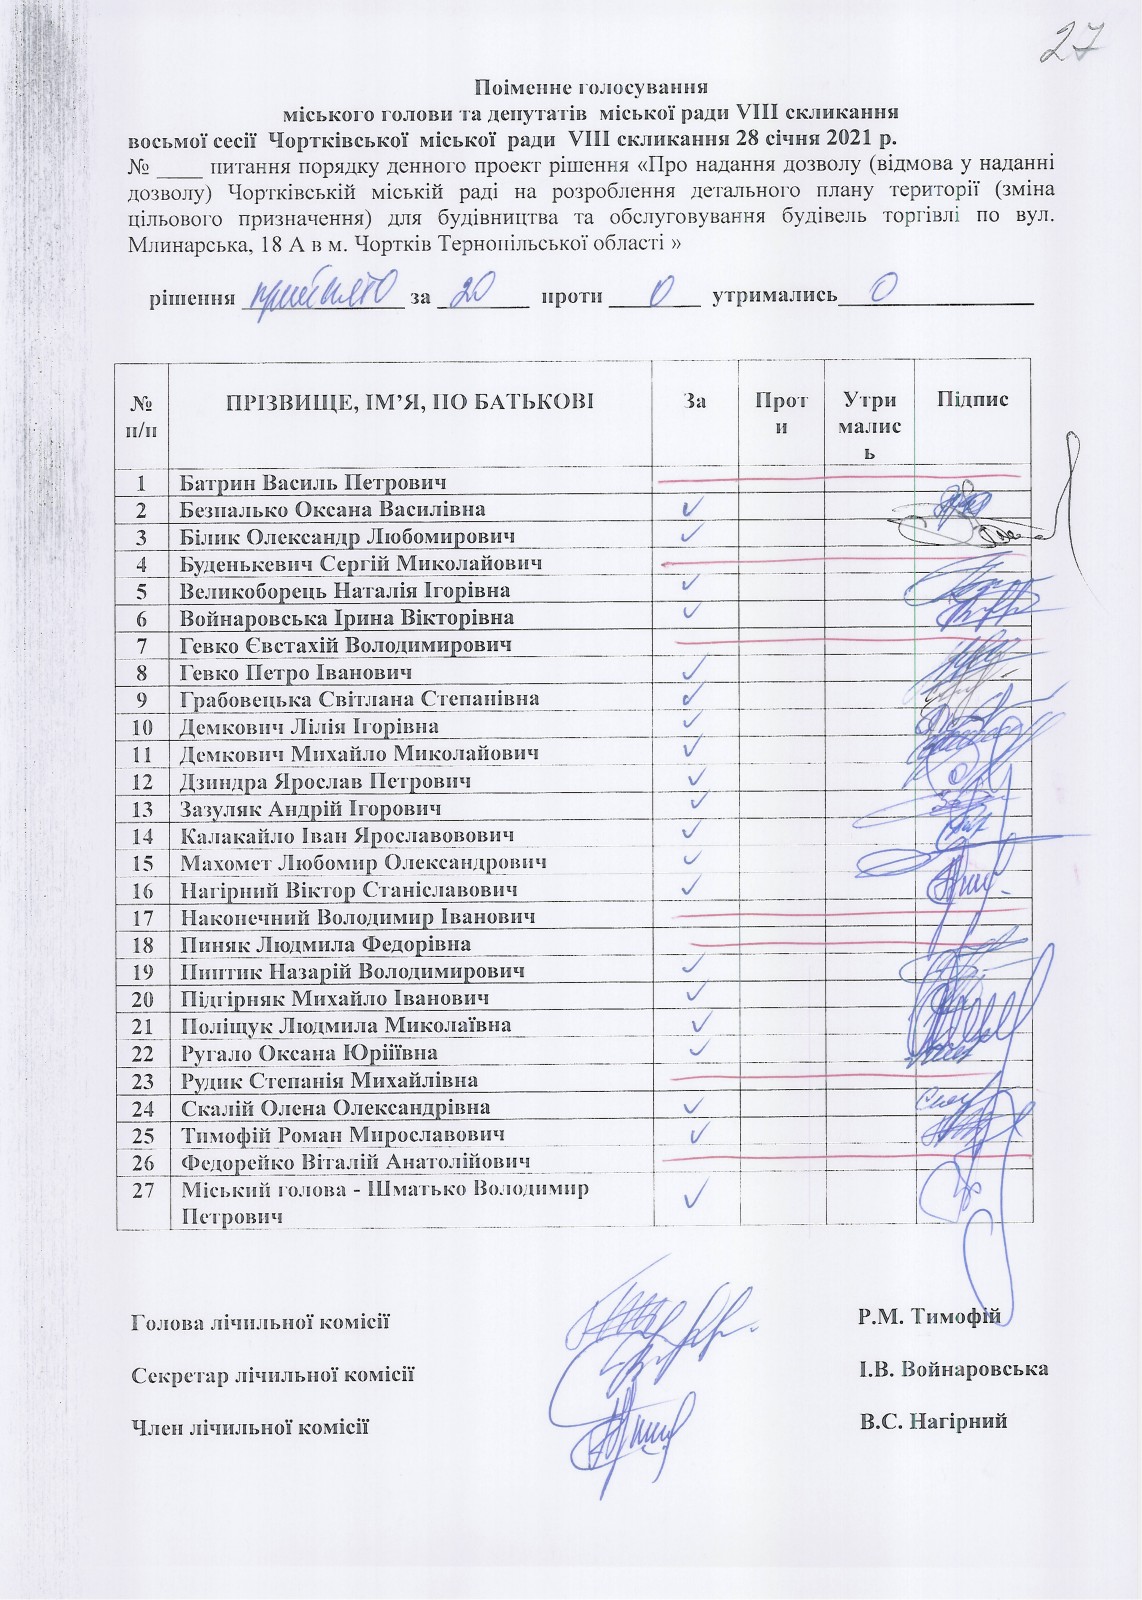 27
Поіменне голосування
міського голови та депутатів міської ради VIII скликання
восьмої сесії Чортківської міської ради VIII скликання 28 січня 2021 р.
№ ____ питання порядку денного проект рішення «Про надання дозволу (відмова у наданні
дозволу) Чортківській міській раді на розроблення детального плану території (зміна
цільового призначення) для будівництва та обслуговування будівель торгівлі по вул.
Млинарська, 18 А в м. Чортків Тернопільської області »
рішення прийнято за 20 проти 0 утримались 0
№ п/п ПРІЗВИЩЕ, ІМ’Я, ПО БАТЬКОВІ За Проти Утримались Підпис
1 Батрин Василь Петрович
2 Безпалько Оксана Василівна ✓
3 Білик Олександр Любомирович ✓
4 Буденькевич Сергій Миколайович
5 Великоборець Наталія Ігорівна ✓
6 Войнаровська Ірина Вікторівна ✓
7 Гевко Євстахій Володимирович
8 Гевко Петро Іванович ✓
9 Грабовецька Світлана Степанівна ✓
10 Демкович Лілія Ігорівна ✓
11 Демкович Михайло Миколайович ✓
12 Дзиндра Ярослав Петрович ✓
13 Зазуляк Андрій Ігорович ✓
14 Калакайло Іван Ярославовович ✓
15 Махомет Любомир Олександрович ✓
16 Нагірний Віктор Станіславович ✓
17 Наконечний Володимир Іванович
18 Пиняк Людмила Федорівна
19 Пиптик Назарій Володимирович ✓
20 Підгірняк Михайло Іванович ✓
21 Поліщук Людмила Миколаївна ✓
22 Ругало Оксана Юріїївна ✓
23 Рудик Степанія Михайлівна
24 Скалій Олена Олександрівна ✓
25 Тимофій Роман Мирославович ✓
26 Федорейко Віталій Анатолійович
27 Міський голова - Шматько Володимир ✓
Петрович
Голова лічильної комісії Р.М. Тимофій
Секретар лічильної комісії І.В. Войнаровська
Член лічильної комісії В.С. Нагірний